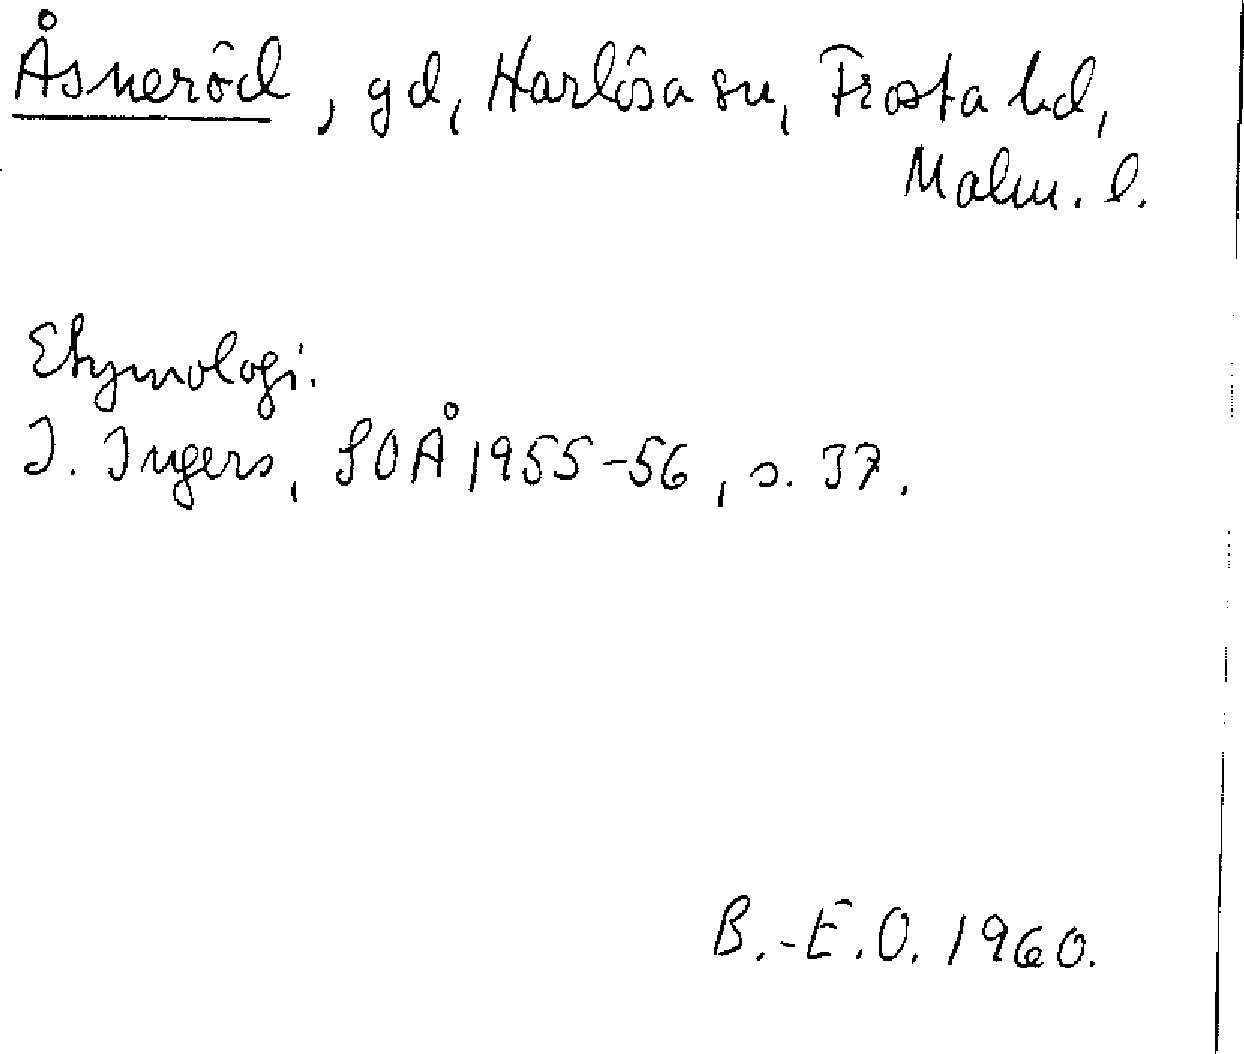 Åsneröd, gd, Harlösa sn, Frosta hd,
Malm. l.
Etymologi.
I. Ingers, SOÅ 1955-56, s. 37.
B.-E.O. 1960.